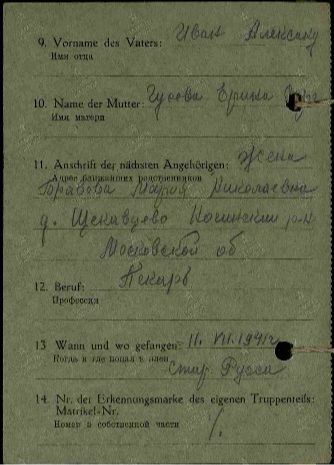 9. Vorname des Vaters: Иван Александ
Имя отца
10. Name der Mutter: Гусева Ерина
Имя матери
11. Anschrift der nächsten Angehörigen: Жена
Адрес ближайших родственников
Мария Николаевна
д. Щекавцево Ногинский р-н
Московской об
12. Beruf: Пекарь
Профессия
13 Wann und wo gefangen: 11. VII. 1941г
Когда и где попал в плен
Стар. Русса
14. Nr. der Erkennungsmarke des eigenen Truppenteils:
Matrikel-Nr.
Номер в собственной части